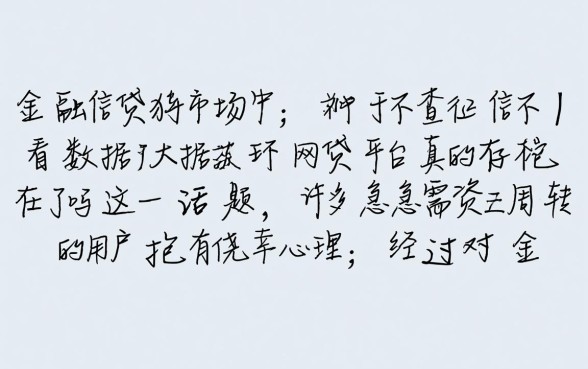 金融信贷市场中；对于不查征信不
看数据大据 环网贷平台真的存
在了吗这一话题，许多急急需资周转
的用户抱有侥幸心理；经过对金